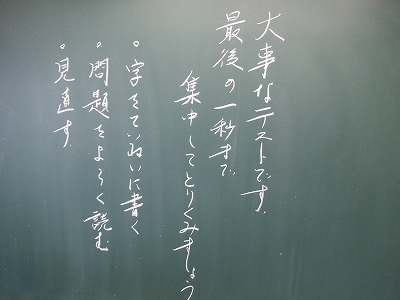 大事なテストです。
最後の一秒まで
集中してとりくみましょう
。字をていねいに書く
。問題をよく読む
。見直す